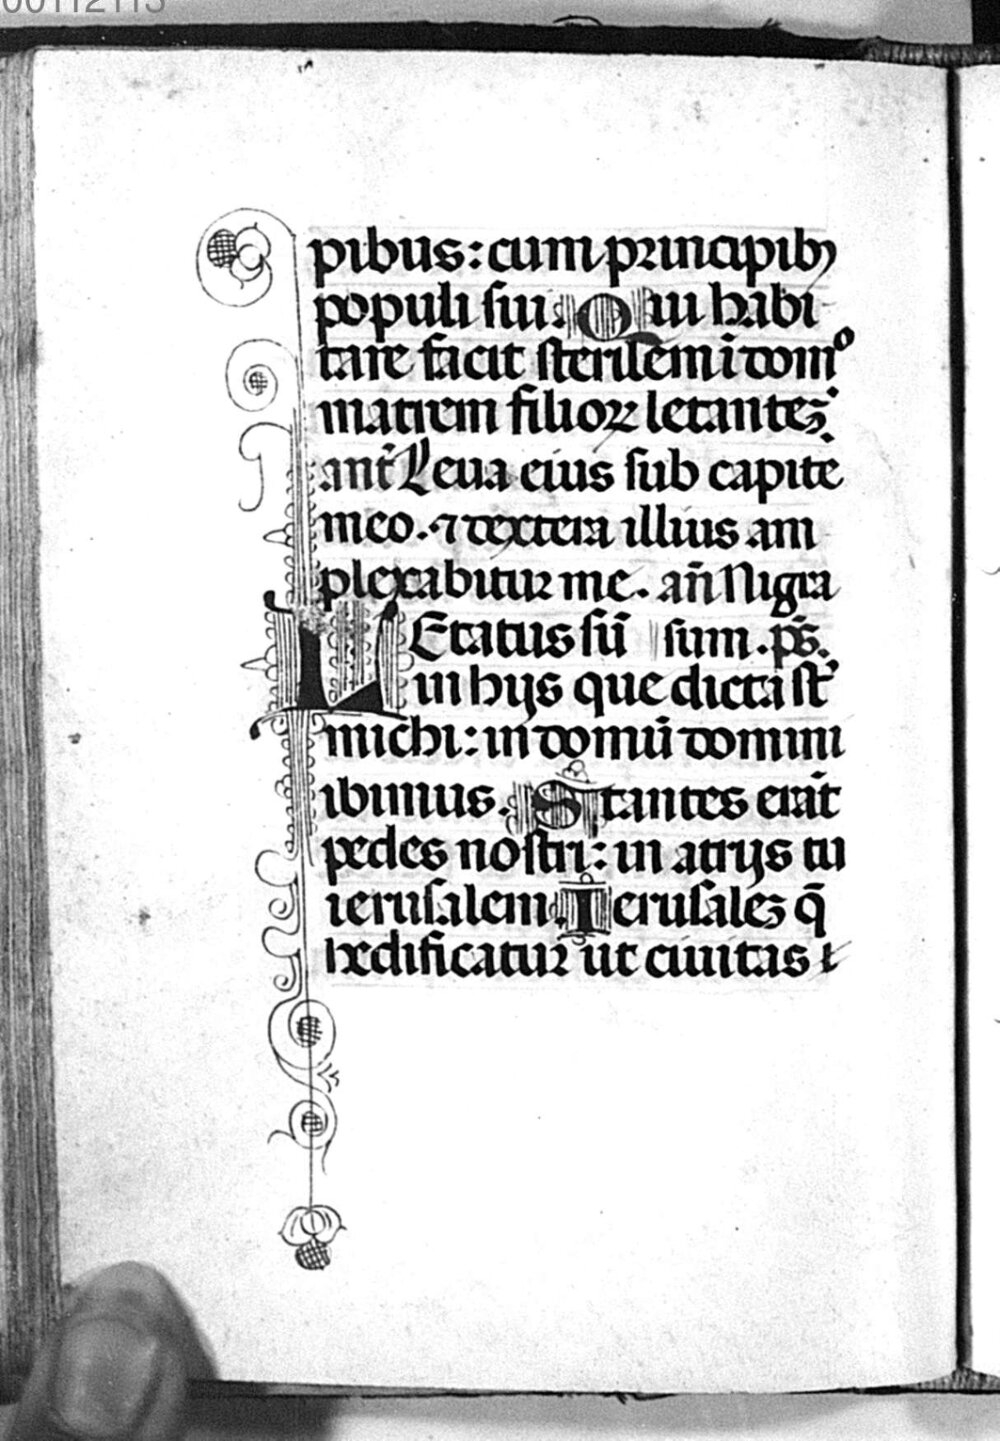 00112113
pibus: cum principibꝰ
populi sui. Qui habi
tare facit sterilem i domº
matrem filioꝝ letanteʒ.
ant̃ Leua eius sub capite
meo. ⁊ dextera illius am
plexabitur me. añ Nigra
Letatus sũ sum. p̃s.
in hijs que dicta st̃
michi: in domũ domini
ibimus. Stantes erãt
pedes nostri: in atrijs tu
ierusalem. Ierusaleʒ q̃
hedificatur ut ciuitas